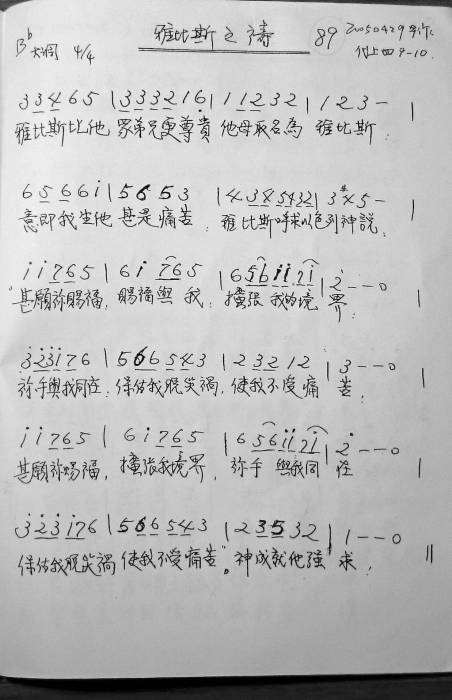 B♭大調 4/4 雅比斯之禱 89 20050429
代上四9-10.
3 3 4 6 5 | 3 3 3 2 1 6 | 1 1 2 3 2 | 1 2 3 - |
雅比斯比他 眾弟兄更尊貴 他母取名為 雅比斯:
6 5 6 6 i | 5 6 5 3 | 4 3 4 5 4 3 2 | 3 #4 5 - |
意即我生他 甚是痛苦. 雅比斯呼求以色列神說:
i i 7 6 5 | 6 i 7 6 5 | 6 5 6 i i 2 i | 2 - - 0 |
"甚願祢賜福, 賜福與我: 擴張我的境界.
3 2 3 1 7 6 | 5 6 6 5 4 3 | 2 3 2 1 2 | 3 - - 0 |
祢手與我同在: 保佑我脫災禍, 使我不受痛苦.
i i 7 6 5 | 6 i 7 6 5 | 6 5 6 i i 2 i | 2 - - 0 |
甚願祢賜福, 擴張我境界, 祢手與我同在
3 2 3 1 7 6 | 5 6 6 5 4 3 | 2 3 5 3 2 | 1 - - 0 ||
保佑我脫災禍 使我不受痛苦". 神成就他 求.